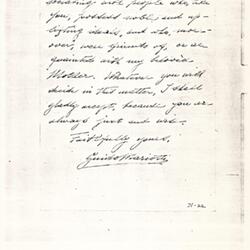 sociating with people who, like
you, possess noble and up-
lifting ideals, and who, more-
over, were friends of, or ac-
quainted with my beloved
Mother. Whatever you will
decide in this matter, I shall
gladly accept, because you are
always just and wise.
Faithfully yours,
Guido Mariotti
21-22